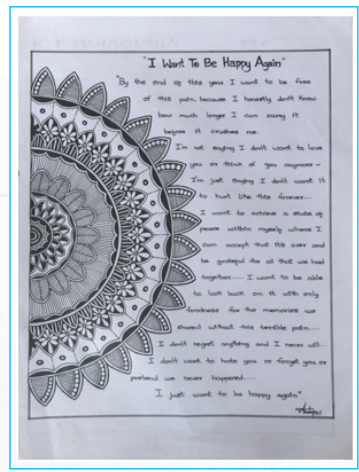 "I Want To Be Happy Again"
"By the end of this year I want to be free
of this pain, because I honestly don't know
how much longer I can carry it
before it crushes me.
I'm not saying I don't want to love
you or think of you anymore -
I'm just saying I don't want it
to hurt like this forever...
I want to achieve a state of
peace within myself where I
can accept that it's over and
be grateful for all that we had
together.... I want to be able
to look back on it with only
fondness for the memories we
shared without this terrible pain....
I don't regret anything and I never will...
I don't want to hate you or forget you or
pretend we never happened....
I just want to be happy again"